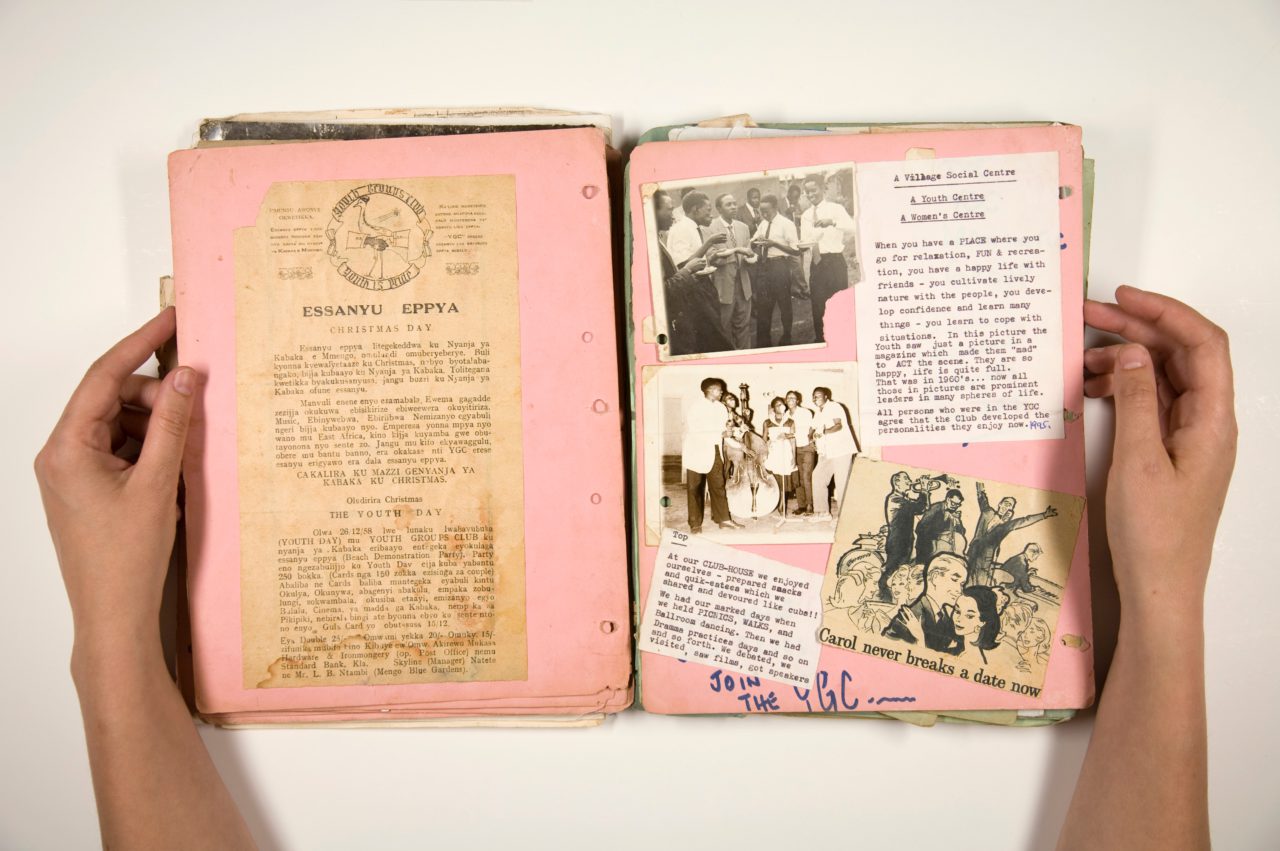 Youth Groups Club
Youth is Pride
"YGC"
ESSANYU EPPYA
CHRISTMAS DAY
Essanyu eppya litegekeddwa ku Nyanja ya
Kabaka e Mmengo, omuberyeberye. Buli
kyonna kyewalyetaaze ku Christmas,
bijja kubaayo ku Nyanja ya Kabaka. Tolitegana
kwetikka byakukusanyusa, jangu buzri ku Nyanja ya
Kabaka ofune essanyu.
Manvuli enene enyo ezamabala, Ewema gagadde
zezijja okukuwa ebisikirize ebiweewera okuyitiriza.
Music, Ebinywebwa, Nemizanyo egyabuli
ngeri bijja kubaayo nyo. Emperesa yonna mpya nyo
wano mu East Africa, kino kijja kuyamba gwe obu-
tayonona nyo sente zo. Jangu mu kifo ekyawaggulu,
obere mu bantu banno, era okakase nti YGC erese
esanyu erigyawo era dala essanyu eppya.
CAKALIRA KU MAZZI GENYANJA YA
KABAKA KU CHRISTMAS.
Oledirira Christmas
THE YOUTH DAY
Olwa 26/12/58 lwe lunaku
(YOUTH DAY) mu YOUTH GROUPS CLUB ku
nyanja ya Kabaka eribaayo entegeka eyokulaga
essanyu eppya (Beach Demonstration Party). Party
eno ku Youth Day ejja kuba yabantu
250 bokka. (Cards nga 150 zokka ezisinga za couple)
Ababa ne Cards baliba mu ntegeka eyabuli kintu
Okulya, Okunywa, abagenyi abakulu, empaka zobu-
lungi, sokwambala, okusiba etaayi, emizanyo egyo
Balalu, Cinema, ya madda ga Kabaka,
Pikipiki, bingi ate byonna ebyo ko sente nto-
no enyo. Gula Card yo 15/12.
Eya Double 25/- Omwami yekka 20/- Omuky. 15/-
Hardware & Ironmongery (op. Post Office) nemu
Standard Bank, Kla. Skyline (Manager) Natete
ne Mr. L. B. Ntambi (Mengo Blue Gardens).
A Village Social Centre
A Youth Centre
A Women's Centre
When you have a PLACE where you
go for relaxation, FUN & recrea-
tion, you have a happy life with
friends - you cultivate lively
nature with the people, you deve-
lop confidence and learn many
things - you learn to cope with
situations. In this picture the
Youth saw just a picture in a
magazine which made them "mad"
to ACT the scene. They are so
happy, life is quite full.
That was in 1960's... now all
those in pictures are prominent
leaders in many spheres of life.
All persons who were in the YGC
agree that the Club developed the
personalities they enjoy now. 1995.
Top
At our CLUB-HOUSE we enjoyed
ourselves - prepared smacks
and quik-eatees which we
shared and devoured like cubs!!
We had our marked days when
we held PICNICS, WALKS, and
Ballroom dancing. Then we had
Dramma practices days and so on
and so forth. We debated, we
visited, saw films, got speakers
Carol never breaks a date now
JOIN
THE YGC